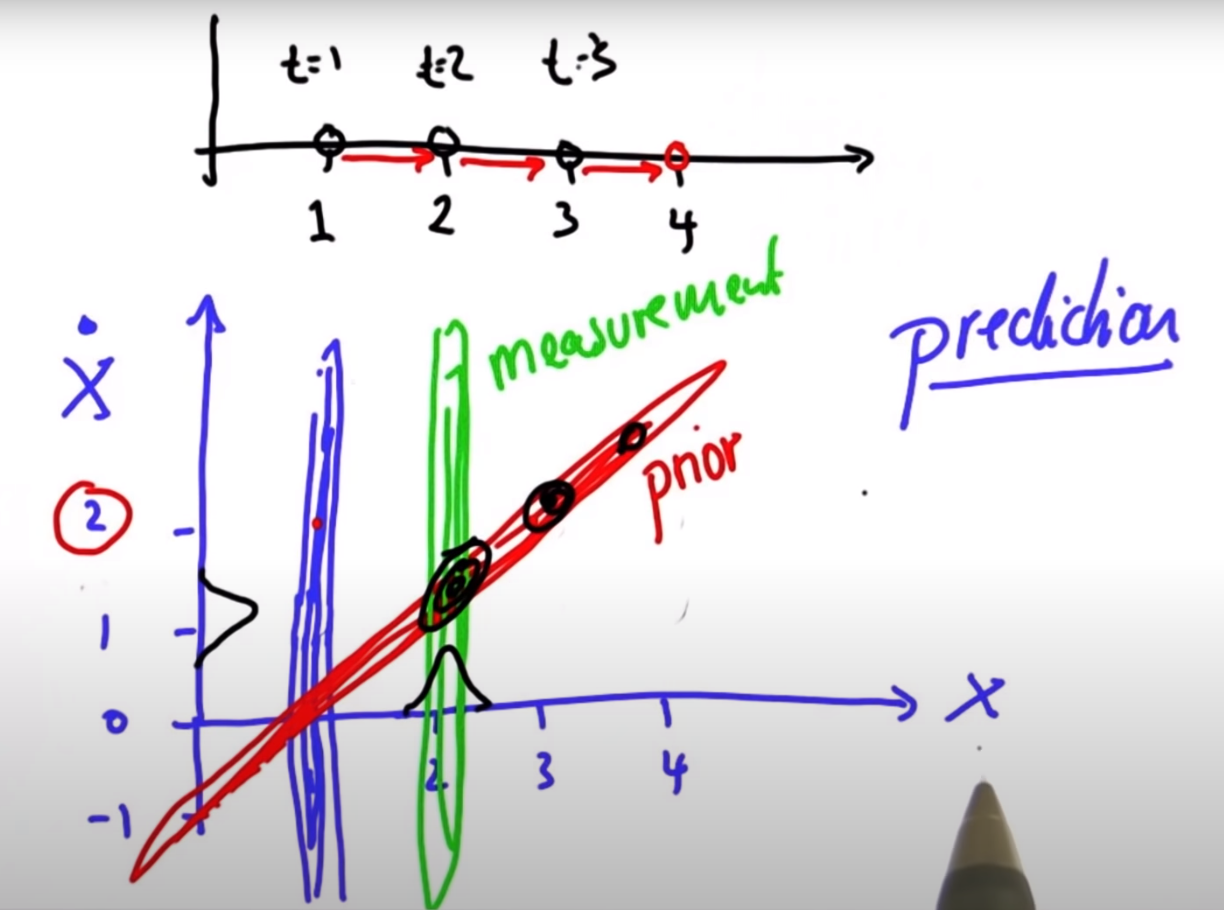 t=1 t=2 t=3
1 2 3 4
measurement
prediction
Ẋ
prior
2
1
0
-1
2 3 4
X